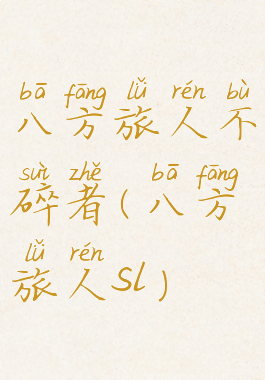 bā fāng lǚ rén bù
八方旅人不
suì zhě bā fāng
碎者(八方
lǚ rén
旅人Sl)